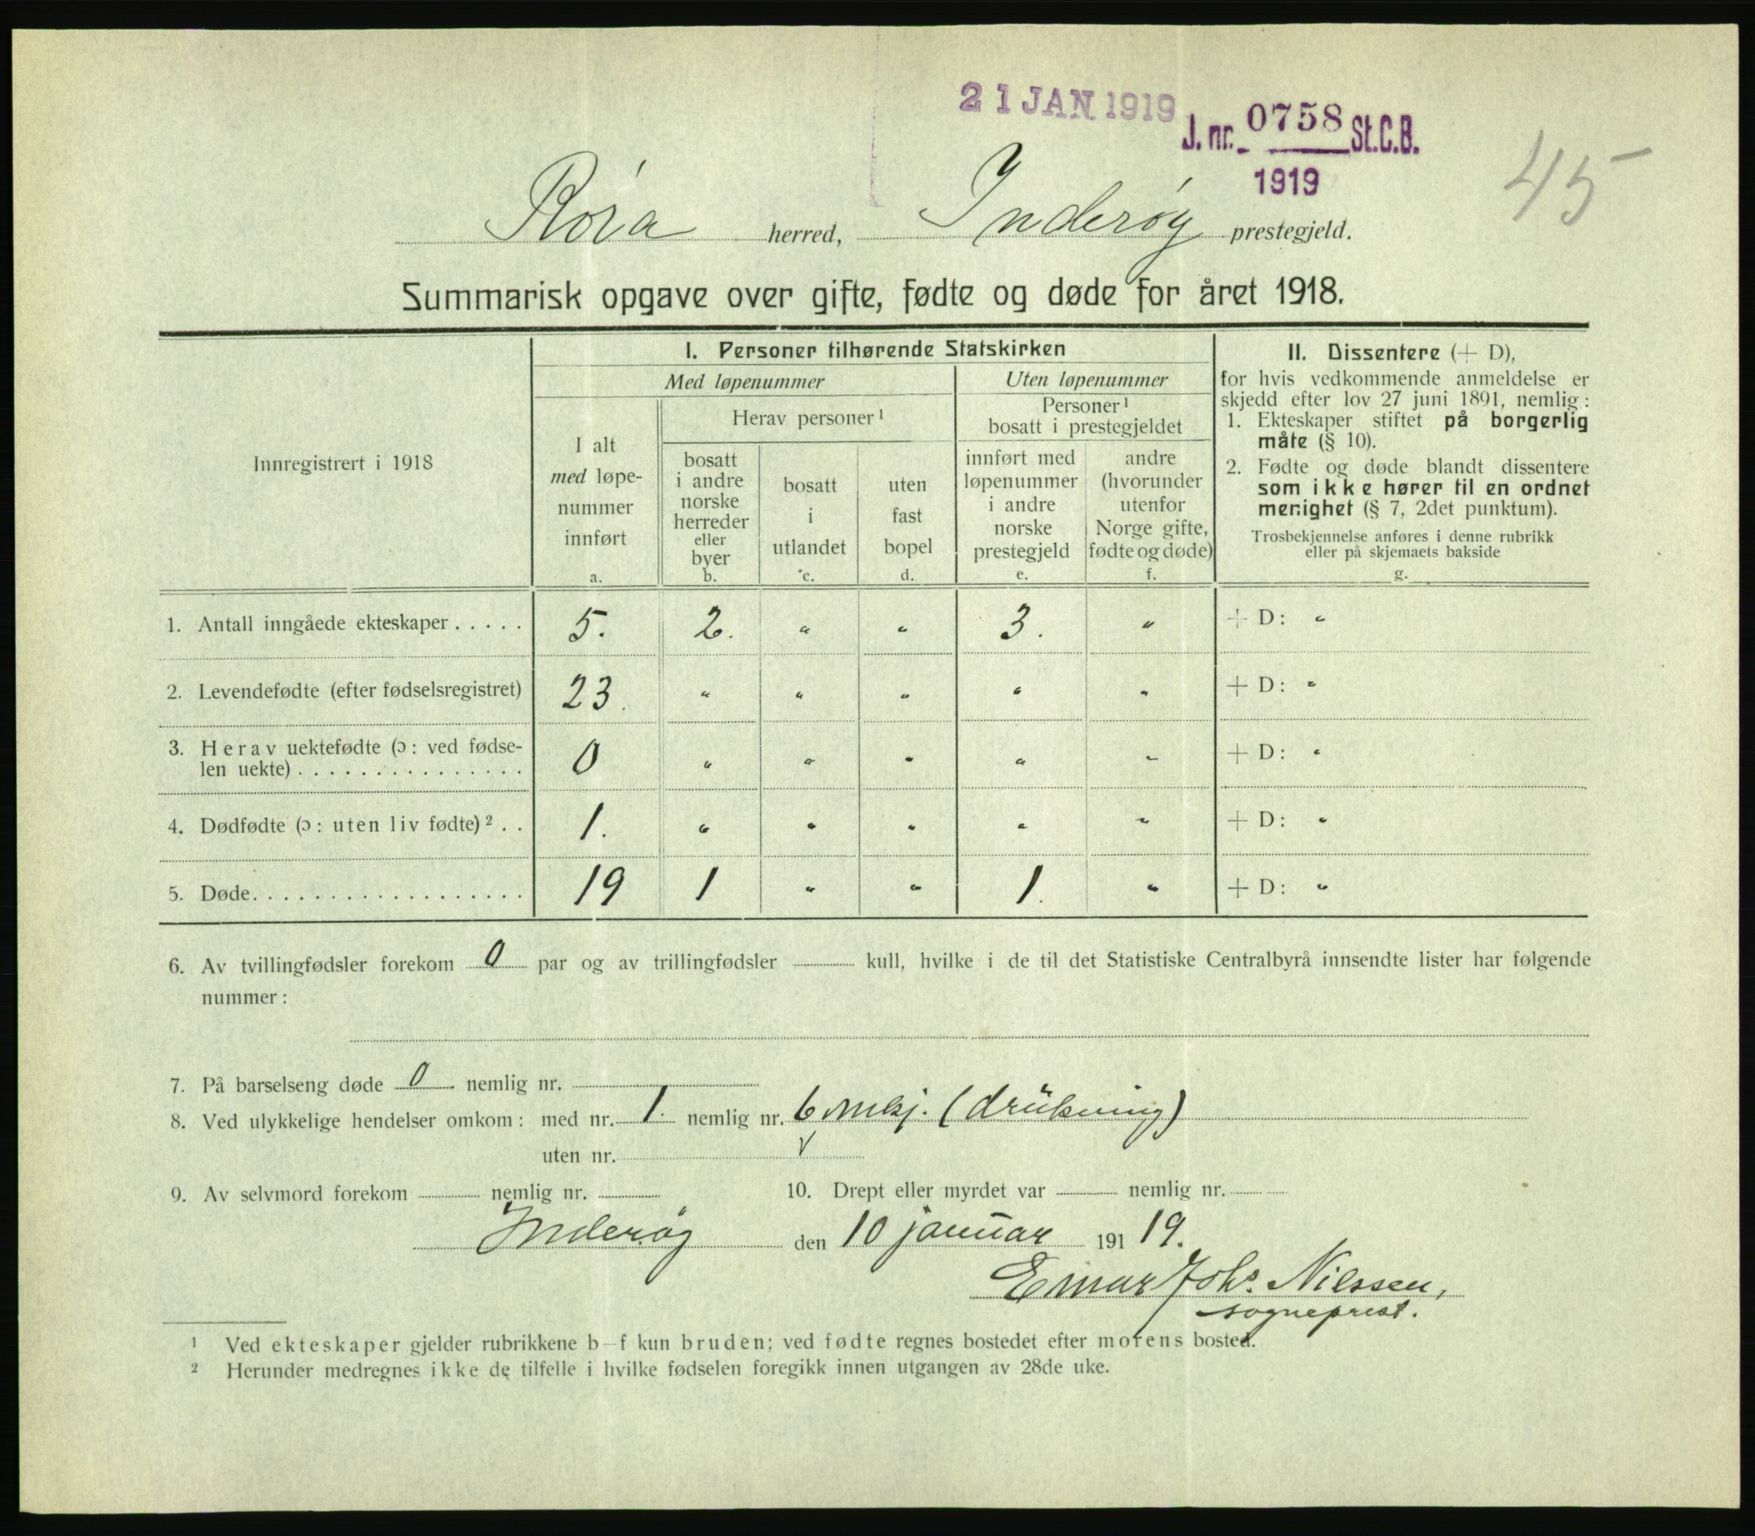 21 JAN 1919
J. nr. 0758 St.C.B.
1919
45
Røra herred, Inderøy prestegjeld.
Summarisk opgave over gifte, fødte og døde for året 1918.
Innregistrert i 1918
I. Personer tilhørende Statskirken
Med løpenummer
Uten løpenummer
I alt
med løpe-
nummer
innført
a.
Herav personer ¹
bosatt
i andre
norske
herreder
eller
byer
b.
bosatt
i
utlandet
c.
uten
fast
bopel
d.
Personer ¹
bosatt i prestegjeldet
innført med
løpenummer
i andre
norske
prestegjeld
e.
andre
(hvorunder
utenfor
Norge gifte,
fødte og døde)
f.
II. Dissentere (+ D),
for hvis vedkommende anmeldelse er
skjedd efter lov 27 juni 1891, nemlig:
1. Ekteskaper stiftet på borgerlig
måte (§ 10).
2. Fødte og døde blandt dissentere
som ikke hører til en ordnet
menighet (§ 7, 2det punktum).
Trosbekjennelse anføres i denne rubrikk
eller på skjemaets bakside
g.
1. Antall inngåede ekteskaper . . . . . 5. 2. " " 3. " + D: "
2. Levendefødte (efter fødselsregistret) 23. " " " " " + D: "
3. Herav uektefødte (ɔ: ved fødse-
len uekte) . . . . . . . . . . . . . . . 0 " " " " " + D: "
4. Dødfødte (ɔ: uten liv fødte) ² . . 1. " " " " " + D: "
5. Døde. . . . . . . . . . . . . . . . . . 19 1 " " 1. " + D: "
6. Av tvillingfødsler forekom 0 par og av trillingfødsler kull, hvilke i de til det Statistiske Centralbyrå innsendte lister har følgende
nummer:
7. På barselseng døde 0 nemlig nr.
8. Ved ulykkelige hendelser omkom: med nr. 1. nemlig nr. 6 mkj. (drükning)
uten nr.
9. Av selvmord forekom nemlig nr. 10. Drept eller myrdet var nemlig nr.
Inderøy den 10 januar 191 19.
Einar Johs. Nilssen,
sogneprest.
¹ Ved ekteskaper gjelder rubrikkene b—f kun bruden; ved fødte regnes bostedet efter morens bosted.
² Herunder medregnes ikke de tilfelle i hvilke fødselen foregikk innen utgangen av 28de uke.